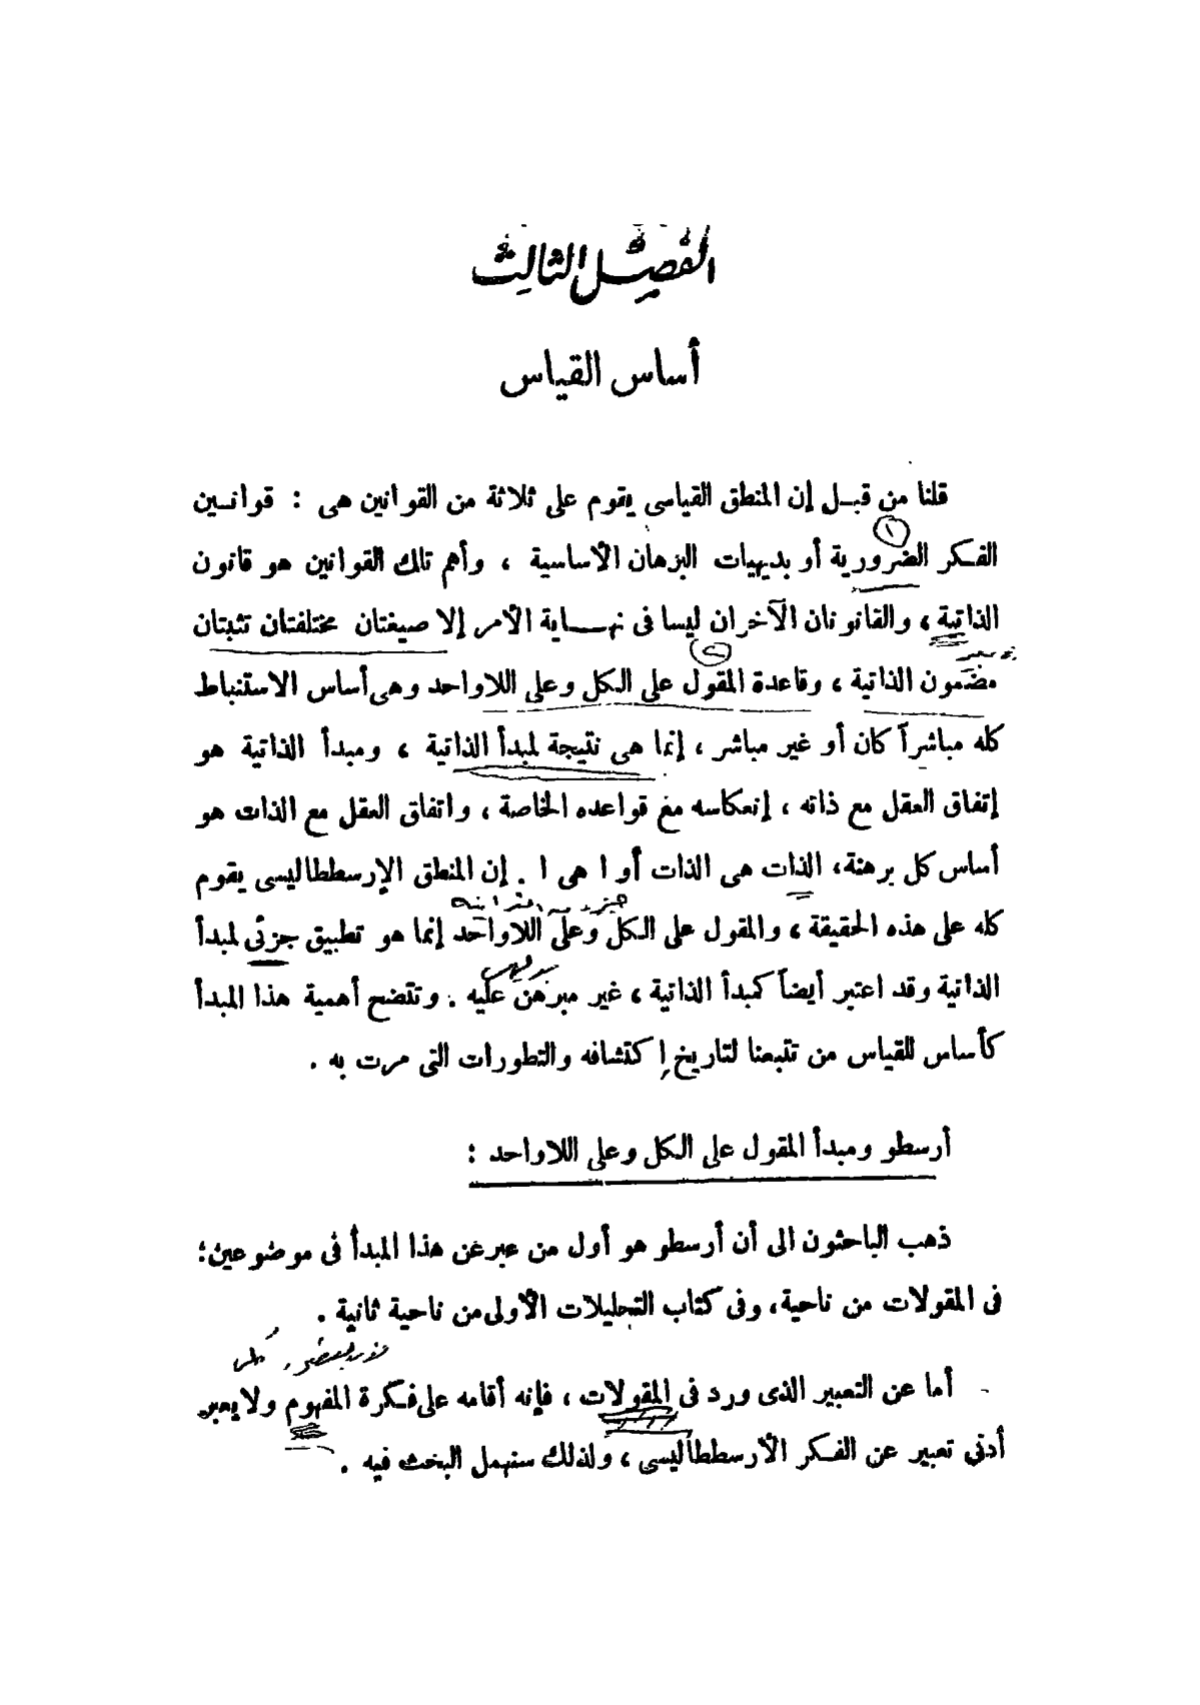 الفصل الثالث
أساس القياس
قلنا من قبل إن المنطق القياسى يقوم على ثلاثة من القوانين هى : قوانين
١
الفكر الضرورية أو بديهيات البرهان الأساسية ، وأهم تلك القوانين هو قانون
الذاتية ، والقانونان الآخران ليسا فى نهاية الأمر إلا صيغتان مختلفتان تثبتان
٢
مضمون الذاتية ، وقاعدة المقول على الكل وعلى اللاواحد وهى أساس الاستنباط
كله مباشراً كان أو غير مباشر ، إنما هى نتيجة لمبدأ الذاتية ، ومبدأ الذاتية هو
إتفاق العقل مع ذاته ، إنعكاسه مع قواعده الخاصة ، واتفاق العقل مع الذات هو
أساس كل برهنة ، الذات هى الذات أو ا هى ا . إن المنطق الإرسططاليسى يقوم
كله على هذه الحقيقة ، والمقول على الكل وعلى اللاواحد إنما هو تطبيق جزئى لمبدأ
الذاتية وقد اعتبر أيضاً كمبدأ الذاتية ، غير مبرهن عليه . وتتضح أهمية هذا المبدأ
كأساس للقياس من تتبعنا لتاريخ إكتشافه والتطورات التى مرت به .
أرسطو ومبدأ المقول على الكل وعلى اللاواحد :
ذهب الباحثون الى أن أرسطو هو أول من عبر عن هذا المبدأ فى موضوعين ؛
فى المقولات من ناحية ، وفى كتاب التحليلات الأولى من ناحية ثانية .
أما عن التعبير الذى ورد فى المقولات ، فإنه أقامه على فكرة المفهوم ولا يعبر
أدنى تعبير عن الفكر الأرسططاليسى ، ولذلك سنهمل البحث فيه .